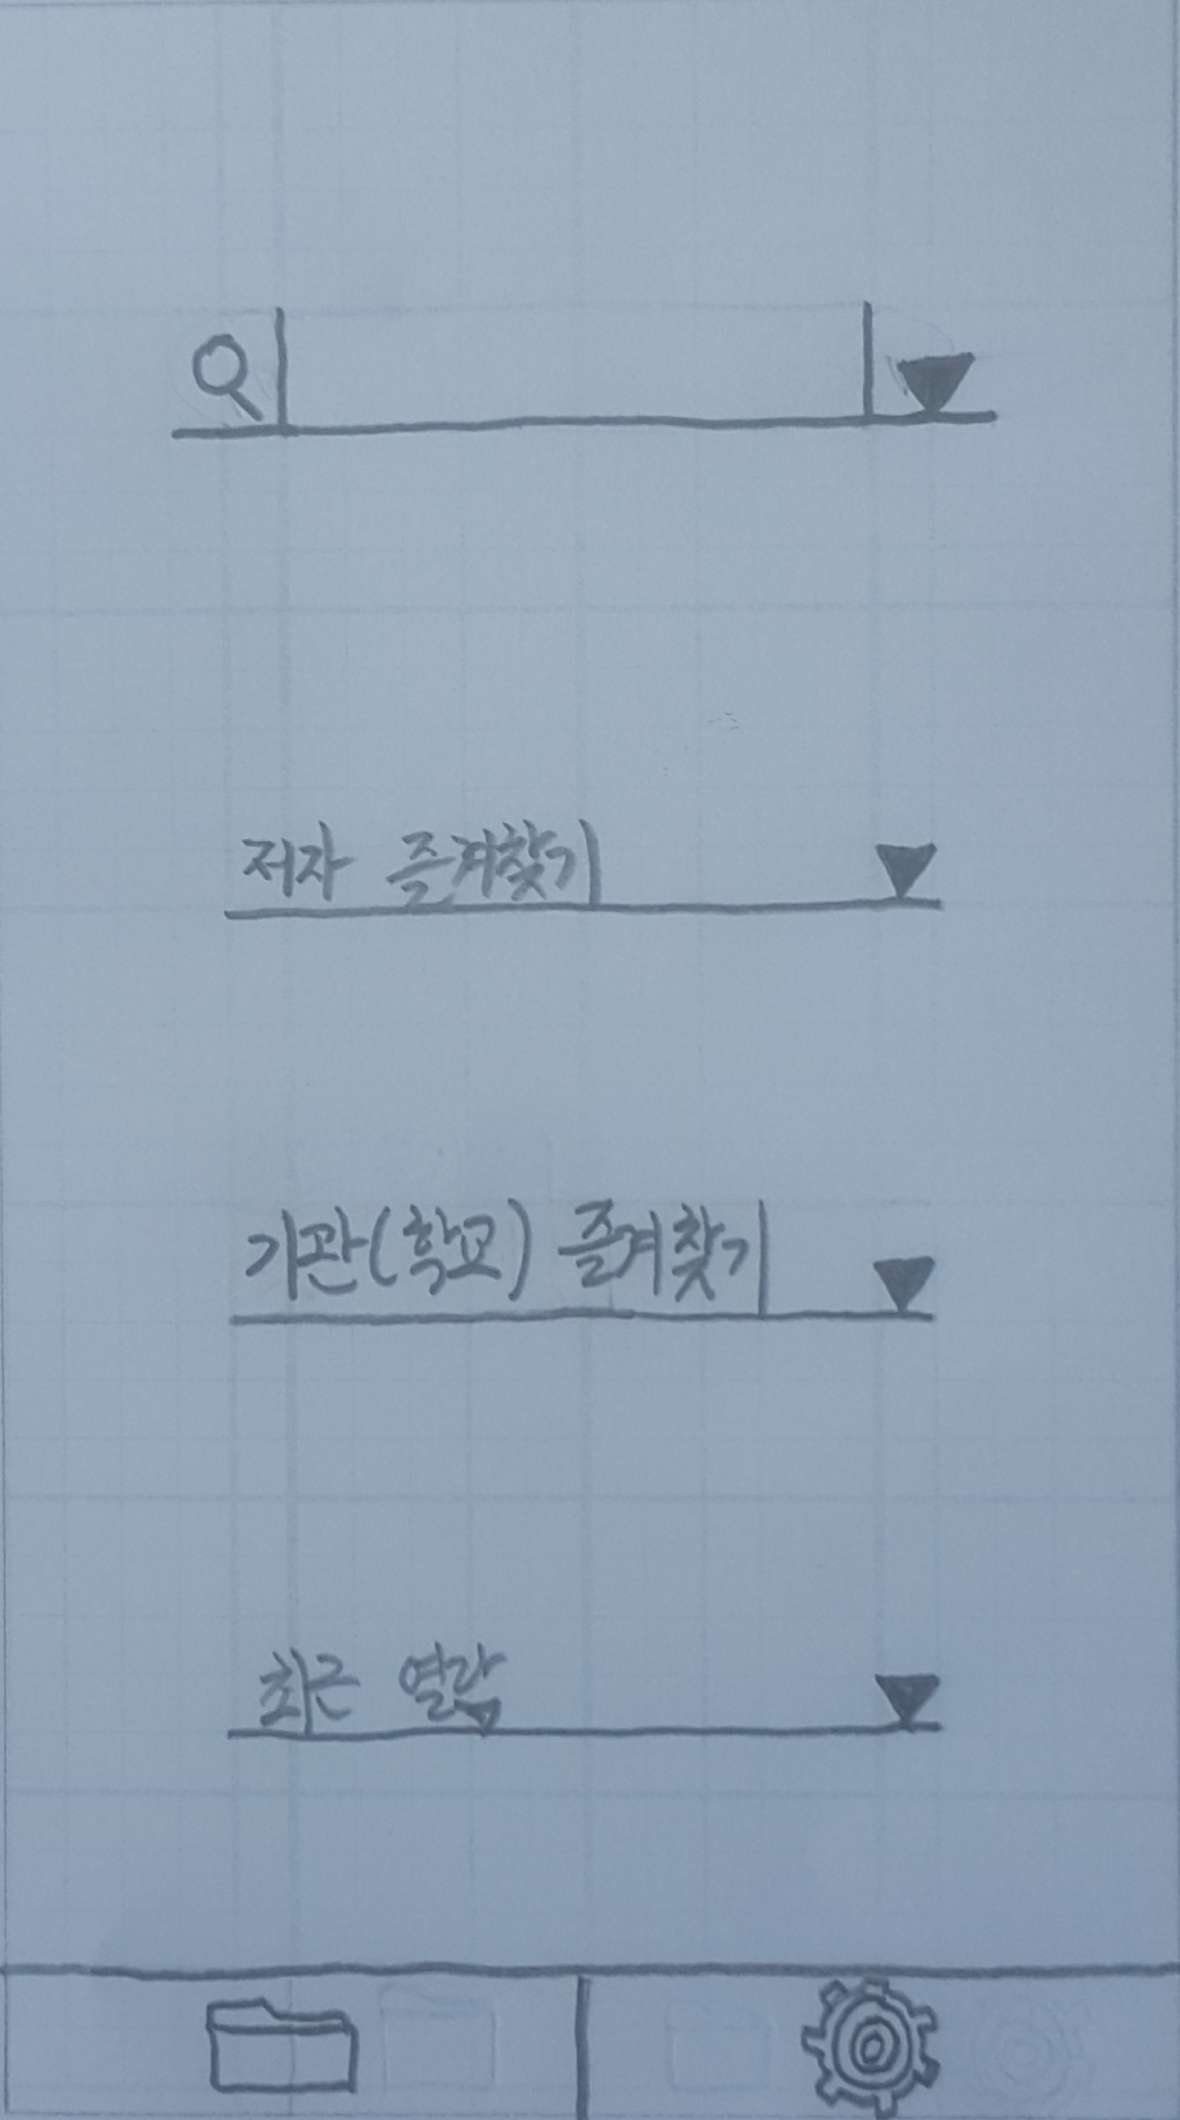 저자 즐겨찾기
기관(학교) 즐겨찾기
최근 열람